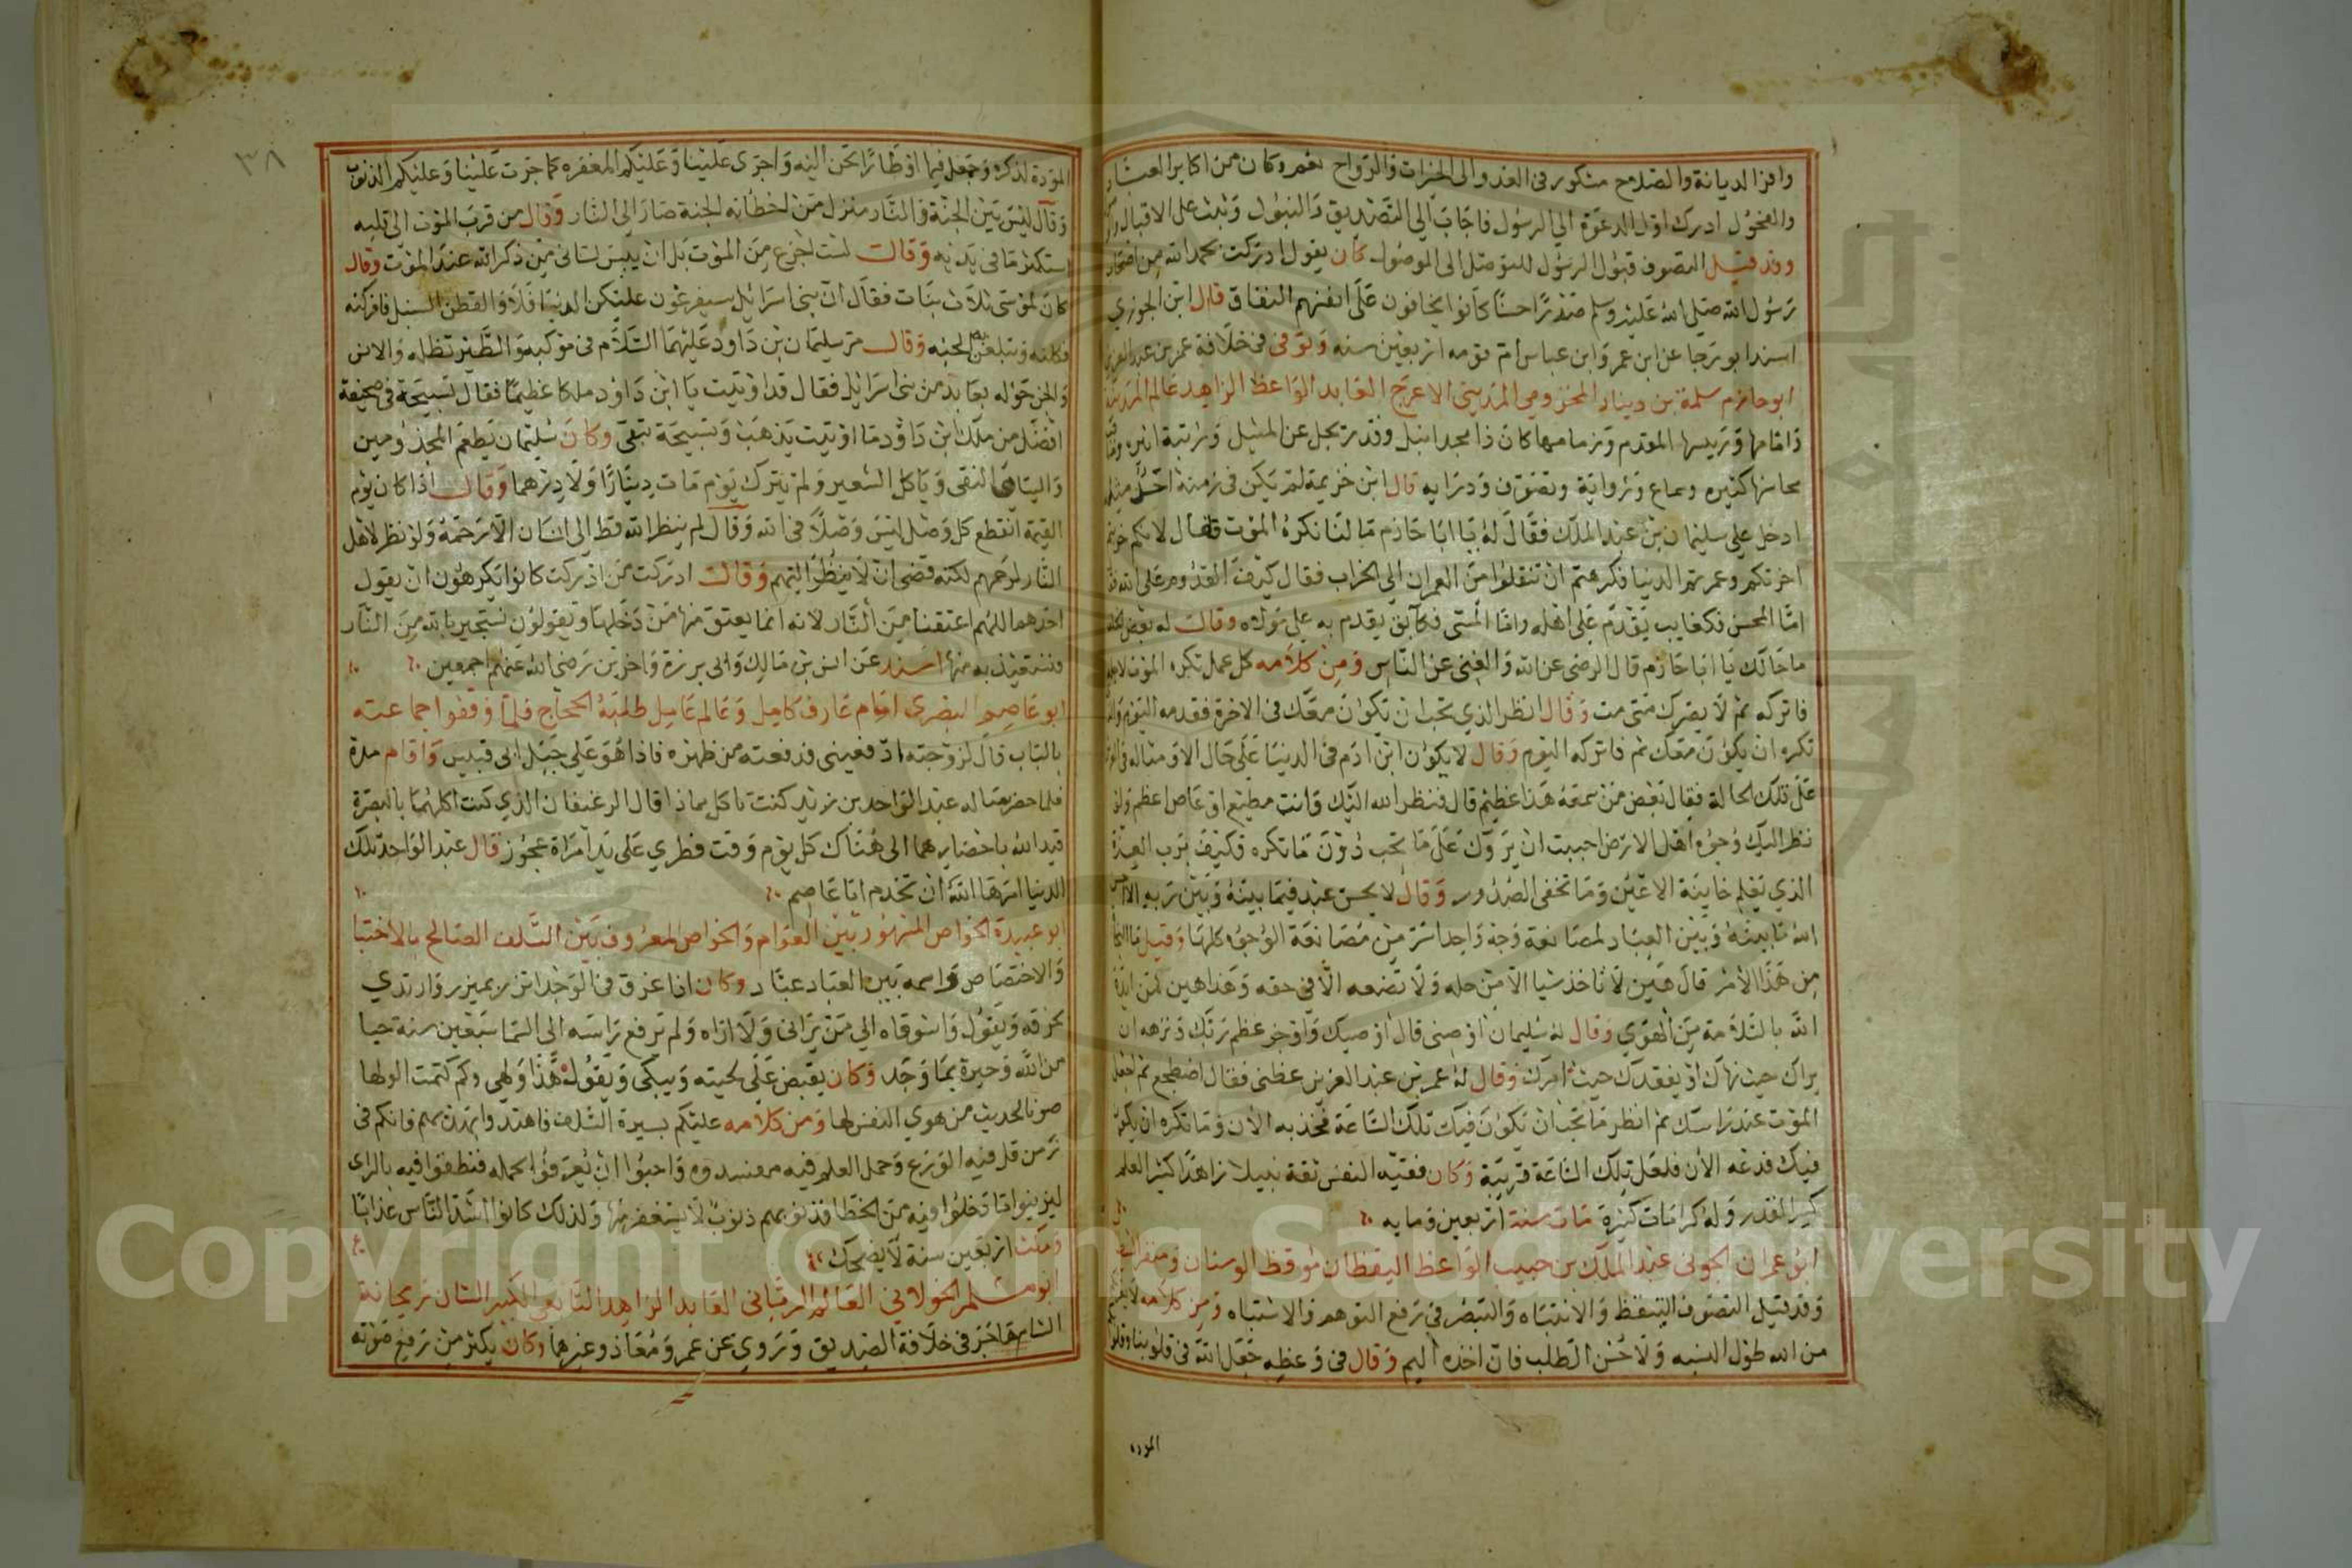 وافر الديانة والصلاح مشكور فى الغدو الى الخيرات والرواح نعم وكان من اكابر العباد
والفحول ادرك اول الدعوة الي الرسول فاجاب الي التصديق والقبول وثبت على الاقبال
وقد قيل التصوف قبول الرسول للتوصل الى الموصول كان يقول ادركت بحمد الله من اصحاب
رسول الله صلى الله عليه وسلم صدرا حسنا كانوا يخافون على انفسهم النفاق قال ابن الجوزي
اسند ابو رجا عن ابن عمر وابن عباس ام قومه اربعين سنه وتوفى فى خلافة عمر بن عبد العزيز
ابو حازم سلمة بن دينار المخزومي المديني الاعرج العابد الواعظ الزاهد عالم المدينة
وامامها ورييسها المقدم وزمامها كان ذا مجد انبل وقدر تجل عن المثيل ورتبة
محاسنها كثيره وسماع ورواية وتصوف ودرايه قال ابن خزيمة لم يكن فى زمنه احد مثله
ادخل علي سليمان بن عبد الملك فقال له يا ابا حازم ما لنا نكره الموت فقال لانكم خربتم
اخرتكم وعمرتم الدنيا فكرهتم ان تنقلوا من العمران الي الخراب فقال كيف القدوم على الله
اما المحسن فكغايب يقدم على اهله واما المسى فكابق يقدم به علي مولاه وقال له بعض
ما حالك يا ابا حازم قال الرضى عن الله والغنى عن الناس ومن كلامه كل عمل تكره الموت لاجله
فاتركه ثم لا يضرك متى مت وقال انظر الذي تحب ان يكون معك فى الاخرة فقدمه اليوم
تكره ان يكون معك ثم فاتركه اليوم وقال لا يكون ابن ادم فى الدنيا على حال الا ومثاله فى
على تلك الحالة فقال بعض من سمعه هذا عظيم قال فنظر الله اليك وانت مطيع او عاص اعظم ولو
نظر اليك وجوه اهل الارض احببت ان يروك على ما تحب دون ما تكره فكيف برب العزة
الذي يعلم خاينة الاعين وما تخفى الصدور وقال لا يحسن عبد فيما بينه وبين ربه الا احسن
الله ما بينه وبين العباد لمصانعة وجه واحد ايسر من مصانعة الوجوه كلها وقيل ما النجاة
من هذا الامر قال هين لا تاخذ شيا الا من حله ولا تضعه الا فى حقه وهذا هين لمن ايده
الله بالسلامة من الهوي وقال له سليمان اوصنى قال اوصيك واوجز عظم ربك ونزهه ان
يراك حيث نهاك او يفقدك حيث امرك وقال له عمر بن عبد العزيز عظنى فقال اضطجع ثم اجعل
الموت عند راسك ثم انظر ما تحب ان يكون فيك تلك الساعة فخذ به الان وما تكره ان يكون
فيك فدعه الان فلعل تلك الساعة قريبة وكان فقيه النفس ثقة نبيلا زاهدا كثير العلم
كبير القدر وله كرامات كثيرة مات سنة اربعين ومايه
ابو عمران الجونى عبد الملك بن حبيب الواعظ اليقظان موقظ الوسنان ومنفر الشيطان
وقد قيل التصوف التيقظ والانتباه والتبصر فى رفع التوهم والاشتباه ومن كلامه لا يغرنكم
من الله طول النسيه ولا حسن الطلب فان اخذه اليم وقال فى وعظه جعل الله فى قلوبنا وقلوبكم
المودة
المودة لذكره وجعل فيها اوطارا تحن اليه واجرى علينا وعليكم المغفره كما جرت علينا وعليكم الذنوب
وقال ليس بين الجنة والنار منزل من اخطأته الجنة صار الي النار وقال من قرب الموت الى قلبه
استكثر ما فى يديه وقال لست اجزع من الموت بل ان ييبس لسانى من ذكر الله عند الموت وقال
كان لموسى ثلاث بنات فقال ان بنى اسرائيل سيعرضون عليكن الدنيا فلا والقطن السنبل فافركنه
فكلنه وتبلغن الجنه وقال مر سليمان بن داود عليهما السلام فى موكبه والطير تظله والانس
والجن حوله بعابد من بنى اسرائيل فقال قد اوتيت يا ابن داود ملكا عظيما فقال تسبيحة فى صحيفة
افضل من ملك ابن داود ما اوتيت يذهب وتسبيحة تبقى وكان سليمان يطعم المجذومين
واليتامى النقى وياكل الشعير ولم يترك يوم مات دينارا ولا درهما وقال اذا كان يوم
القيمة انقطع كل وصل ليس وصلا فى الله وقال لم ينظر الله قط الى انسان الا رحمه ولو نظر لاهل
النار لرحمهم لكنه قضى ان لا ينظر اليهم وقال ادركت من ادركت كانوا يكرهون ان يقول
احدهم اللهم اعتقنا من النار لانه انما يعتق منها من دخلها ويقولون نستجير بالله من النار
ونستعيذ به منها اسند عن انس بن مالك وابى برزة واخرين رضى الله عنهم اجمعين
ابو عاصم البصرى امام عارف كامل وعالم عامل طلبه الحجاج فلما وقفوا جماعته
بالباب قال لزوجته ادفعينى فدفعته من ظهره فاذا هو على جبل ابى قبيس واقام مدة
على تلك الحالة فلما حضر قال له عبد الواحد بن زيد كنت تاكل بماذا قال الرغيفان الذي كنت اكلهما بالبصرة
قيد الله باحضارهما الى هناك كل يوم وقت فطري على يد امراة عجوز قال عبد الواحد تلك
الدنيا امرها الله ان تخدم ابا عاصم
ابو عبيدة الخواص المشهور بين العوام والخواص المعروف بين السلف الصالح بالاختبا
والاختصاص واسمه بين العباد عباد وكان اذا غرق فى الوجد اتزر بميزر وارتدي
بخرقه ويقول واشوقاه الي من يرانى ولا اراه ولم يرفع راسه الى السما سبعين سنة حيا
من الله وحيرة بما وجد وكان يقبض على لحيته ويبكى ويقول هذا ولهى وكم كتمت الولها
صونا لحديث من هوي النفس لها ومن كلامه عليكم بسيرة السلف فاهتدوا بهديهم فانكم فى
زمن قل فيه الورع وحمل العلم فيه مفسدوه واحبوا ان يعرفوا بحمله فنطقوا فيه بالراى
ليزينوا ما دخلوا فيه من الخطا فذنوبهم ذنوب لا يستغفر منها ولذلك كانوا اشد الناس عذابا
ومكث اربعين سنة لا يضحك
ابو مسلم الخولانى العالم الربانى العابد الزاهد التابعى الكبير الشان ريحانة
الشام هاجر فى خلافة الصديق وروي عن عمر ومعاذ وغيرهما وكان يكثر من رفع صوته
٣٨
Copyright © King Saud University